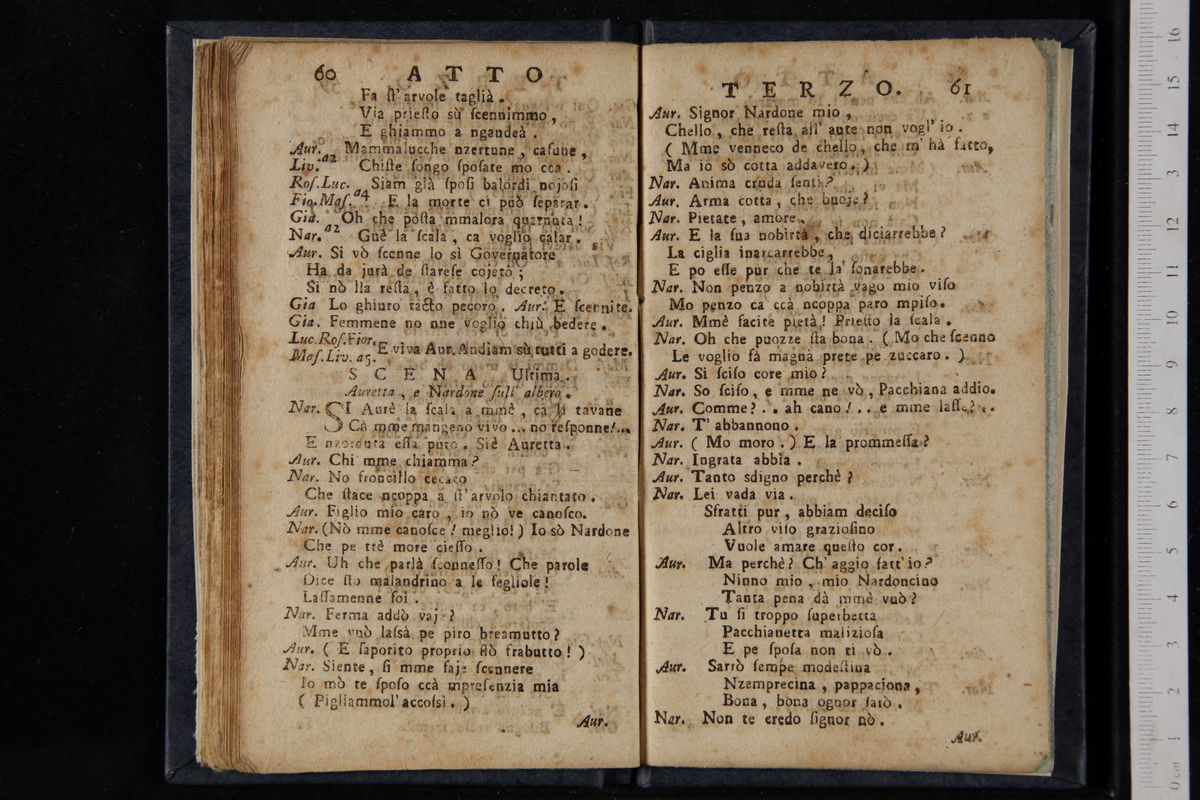 60 ATTO
Fa ſt'arvole taglià.
Via prieſto sù ſcennimmo,
E ghiammo a ngaudeà.
Aur. Mammalucche nzertune, caſune,
Liv. a2 Chiſte ſongo ſpoſate mo cca.
Roſ. Luc. Siam già ſpoſi balordi nojoſi
Fio. Maſ. a4 E la morte ci può ſeparar.
Gia. Oh che poſta mmalora quarnuta!
Nar. a2 Guè la ſcala, ca voglio calar.
Aur. Si vò ſcenne lo sì Governatore
Ha da jurà de ſtareſe cojeto;
Si nò lla reſta, è fatto lo decreto.
Gia Lo ghiuro tacto pecoro. Aur. E ſcennite.
Gia. Femmene no nne voglio chiù bedere.
Luc. Roſ. Fior.
Maſ. Liv. a5. E viva Aur. Andiam sù tutti a godere.
SCENA Ultima.
Auretta, e Nardone ſull' albero.
Nar. SI Aurè la ſcala a mmè, ca li tavane
Cà mme mangeno vivo ... no reſponne!...
E nzorduta eſſa puro. Siè Auretta.
Aur. Chi mme chiamma?
Nar. No froncillo cecato
Che ſtace ncoppa a ſt'arvolo chiantato.
Aur. Figlio mio caro, io nò ve canoſco.
Nar. (Nò mme canoſce! meglio!) Io sò Nardone
Che pe ttè more cieſſo.
Aur. Uh che parlà ſconneſſo! Che parole
Dice ſto malandrino a le fegliole!
Laſſamenne foi.
Nar. Ferma addò vaje?
Mme vuò laſsà pe piro breamutto?
Aur. (E ſaporito proprio ſtò frabutto!)
Nar. Siente, ſi mme faje ſcennere
Io mò te ſpoſo ccà mpreſenzia mia
(Pigliammol'accoſsì.)
Aur.
TERZO. 61
Aur. Signor Nardone mio,
Chello, che reſta all' aute non vogl'io.
(Mme venneco de chello, che m'hà fatto,
Ma io sò cotta addavero.)
Nar. Anima cruda ſenti?
Aur. Arma cotta, che buoje?
Nar. Pietate, amore.
Aur. E la ſua nobirtà, che diciarrebbe?
La ciglia inarcarrebbe,
E po eſſe pur che te la ſonarebbe.
Nar. Non penzo a nobirtà vago mio viſo
Mo penzo ca ccà ncoppa paro mpiſo.
Aur. Mmè facite pietà! Prieſto la ſcala.
Nar. Oh che puozze ſta bona. (Mo che ſcenno
Le voglio fà magnà prete pe zuccaro.)
Aur. Si ſciſo core mio?
Nar. So ſciſo, e mme ne vò, Pacchiana addio.
Aur. Comme?.. ah cano!.. e mme laſſe?..
Nar. T' abbannono.
Aur. (Mo moro.) E la prommeſſa?
Nar. Ingrata abbia.
Aur. Tanto sdigno perchè?
Nar. Lei vada via.
Sfratti pur, abbiam deciſo
Altro viſo grazioſino
Vuole amare queſto cor.
Aur. Ma perchè? Ch'aggio fatt'io?
Ninno mio, mio Nardoncino
Tanta pena dà mmè vuò?
Nar. Tu ſi troppo ſuperbetta
Pacchianetta malizioſa
E pe ſpoſa non ti vò.
Aur. Sarrò ſempe modeſtina
Nzemprecina, pappaciona,
Bona, bona ognor ſarò.
Nar. Non te credo ſignor nò.
Aur.